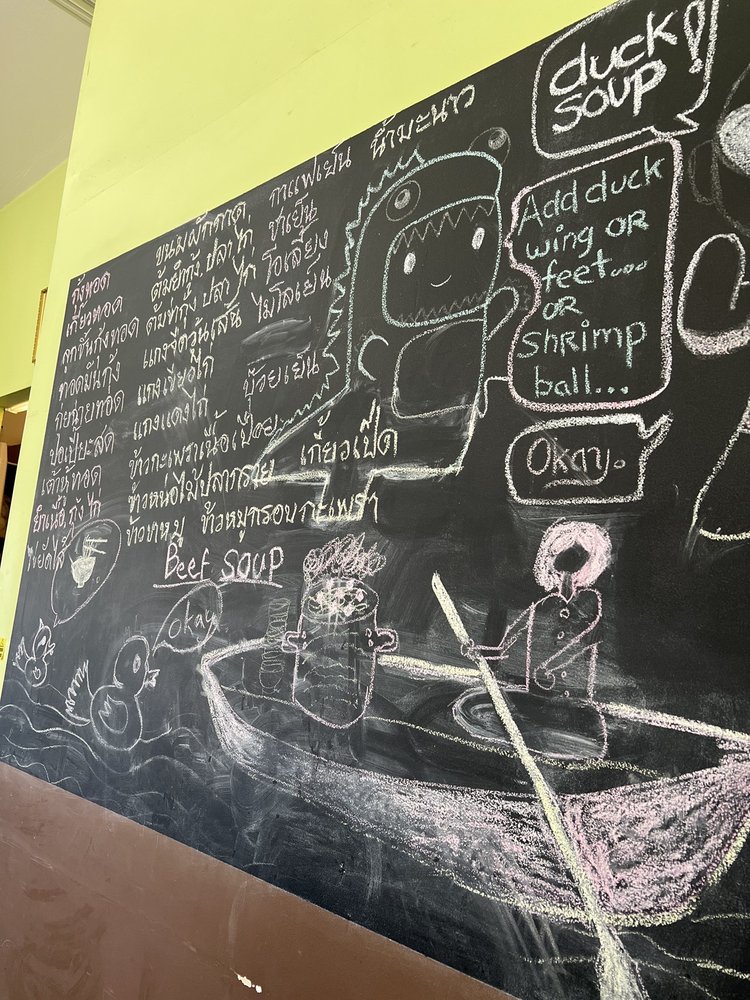 กุ้งทอด
เกี๊ยวทอด
ลูกชิ้นกุ้งทอด
ทอดมันกุ้ง
กุยช่ายทอด
ปอเปี๊ยะสด
เต้าหู้ทอด
ยำเนื้อ, กุ้ง, ไก่
ไข่ยัดไส้
ขนมผักกาด,
ต้มยำกุ้ง, ปลา, ไก่
ต้มข่ากุ้ง ปลา ไก่
แกงจืดวุ้นเส้น
แกงเขียวไก่
แกงแดงไก่
ข้าวกะเพราเนื้อเปื่อย
ข้าวหน่อไม้ปลากราย
ข้าวขาหมู
ข้าวหมูกรอบกะเพรา
กาแฟเย็น
ชาเย็น
โอเลี้ยง
ไมโลเย็น
บ๊วยเย็น
เกี๊ยวเป็ด
น้ำมะนาว
Beef soup
okay
duck
soup!
Add duck
wing OR
feet...
OR
shrimp
ball...
Okay.